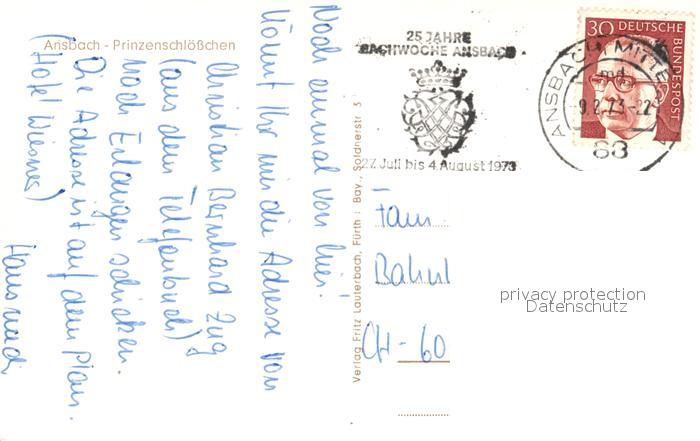 Ansbach - Prinzenschlößchen
Noch einmal von hier!
Könnt Ihr mir die Adresse von
Christian Bernhard Zug
(aus dem Telefonbuch)
nach Erlangen schicken.
Die Adresse ist auf dem Plan.
(Hotel Wiesner)
Hansruedi
Verlag Fritz Lauterbach, Fürth : Bay., Soldnerstr 5
25 JAHRE
BACHWOCHE ANSBACH
27. Juli bis 4. August 1973
ANSBACH MITTE
md
-9.2.73-22
88
30 DEUTSCHE
BUNDESPOST
Fam
CH-60
privacy protection
Datenschutz